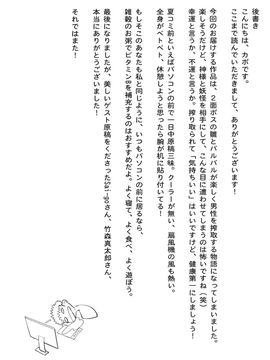 後書き
こんにちは、カボです。
ここまで読んでいただきまして、ありがとうございます！
今回のお届けする作品は、２面ボスの雛とパルパルが楽しく男性を搾取する物語になってしまいました。
楽しそうだけど、神様と妖怪を相手にして、こんな目に遭わせてしまうのは怖いですね（笑）
幸と言うか、不運と言うか。搾り取られて「気持ちいい」はいいですけど、健康第一にしましょう！
夏コミ前といえばパソコンの前で一日中原稿三昧。クーラーが無い、扇風機の風も熱い。
全身がベトベト、休憩しようと思ったら腕が机に貼り付いてる！
もしそこのあなたも私と同じように、いつもパソコンの前に居るなら、
雑穀のお粥でビタミンBを補充するのはおすすめだよ。よく寝て、よく食べ、よく遊ぼう。
最後になりましたが、美しいゲスト原稿をくださったさん、竹森真太郎さん、
本当にありがとうございました！
それではまた！